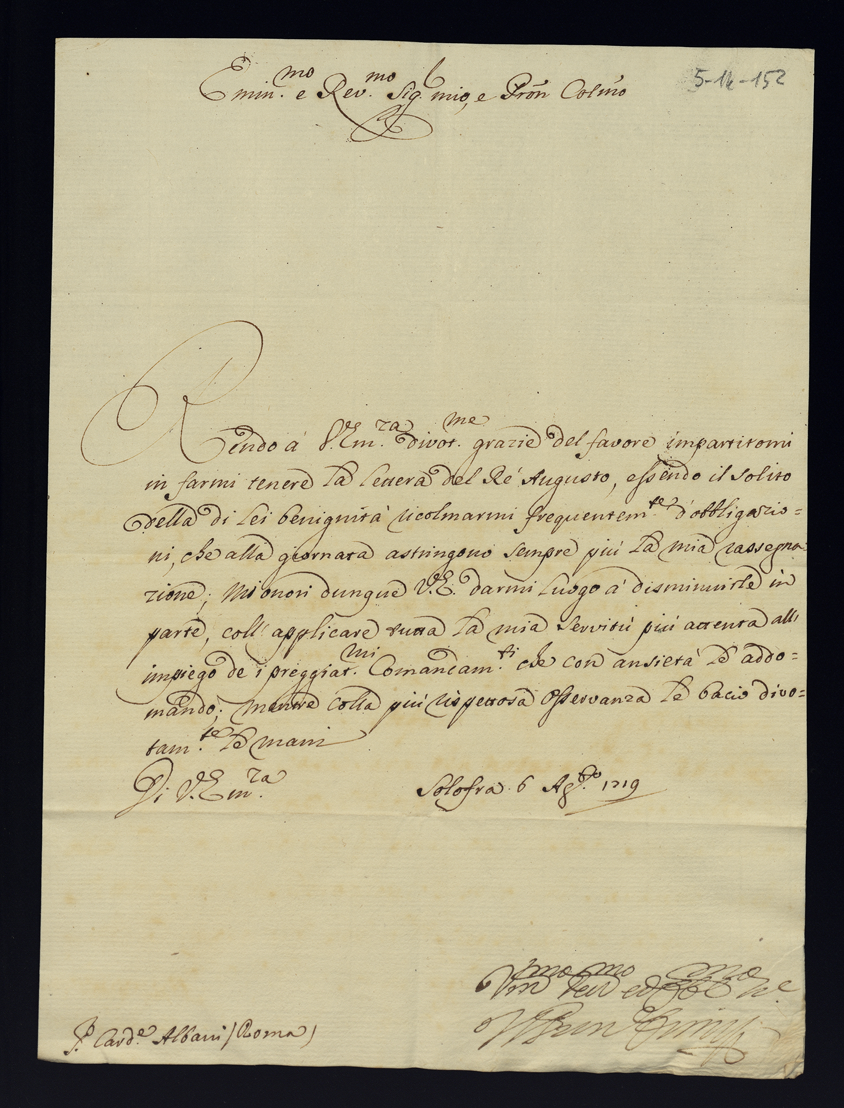 5-14-152
Emin.mo e Rev.mo Sig.r mio, e Pron Colmo
Rendo à V. Em.za divot.me grazie del favore impartitomi
in farmi tenere la lettera del Rè Augusto, essendo il solito
della di Lei benignità ricolmarmi frequentem.te d'obbligazio=
ni, che alla giornata astringono sempre più la mia rassegna=
zione; Mi onori dunque V.E. darmi luogo à disminuirle in
parte, coll' applicare tutta la mia servitù più attenta all'
impiego de i preggiat.mi Comandam.ti che con ansietà le addo=
mando; Mentre colla più rispettosa osservanza le bacio divo=
tam.te le mani
Di V. Em.za
Solofra 6 Ag.sto 1719
S.r Card.e Albani (Roma)